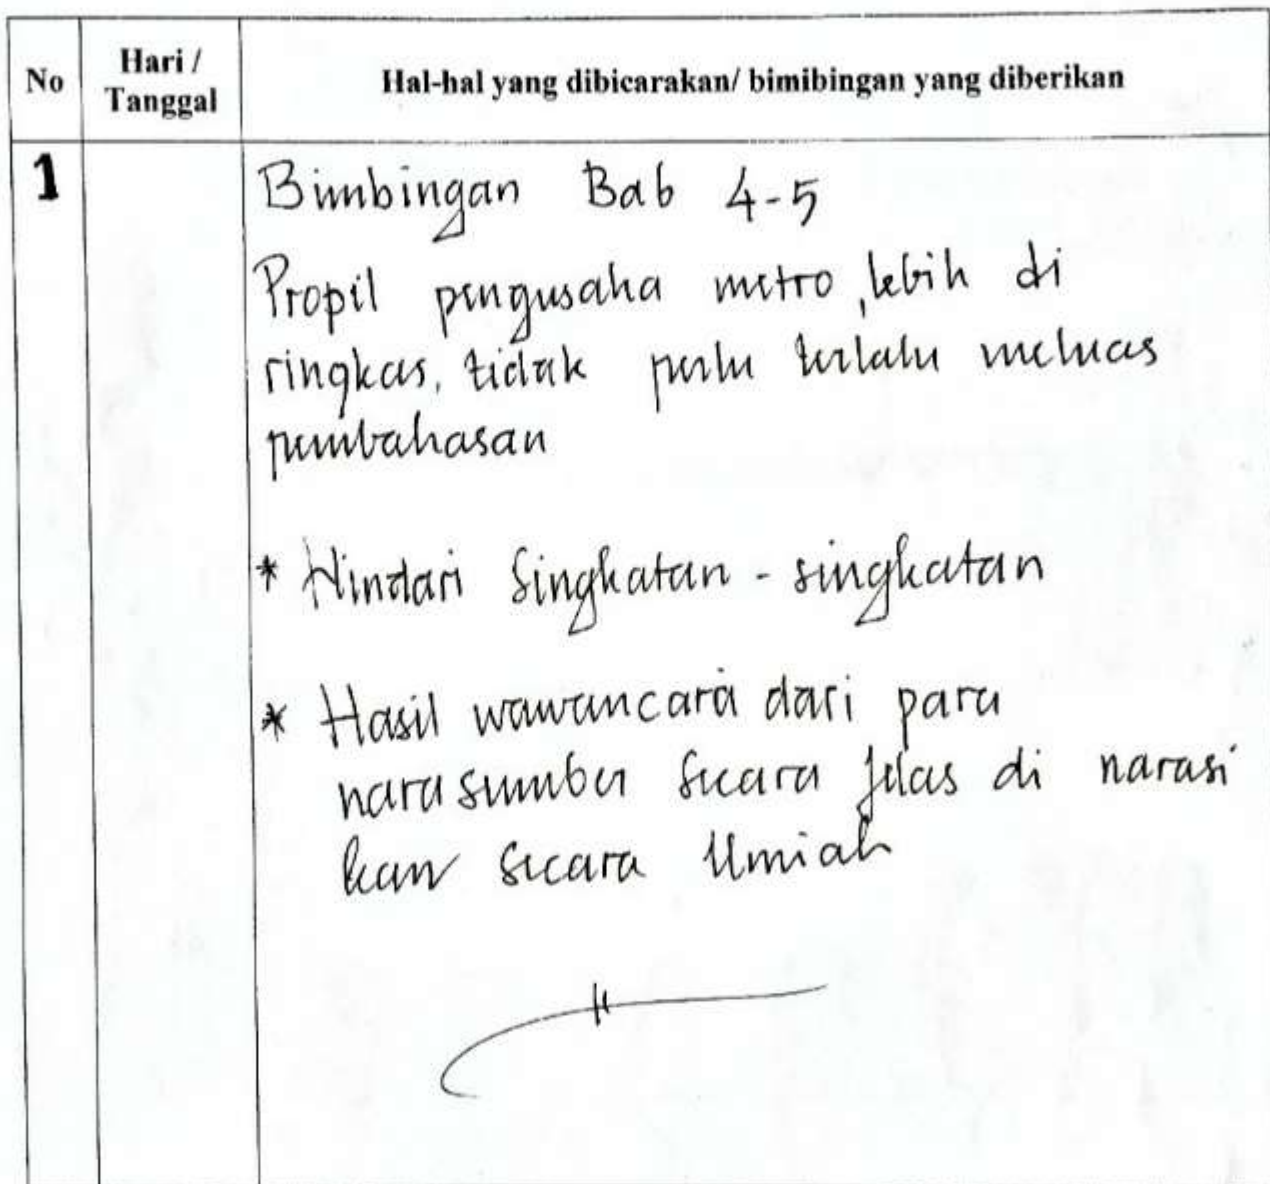 No
Hari /
Tanggal
Hal-hal yang dibicarakan/ bimibingan yang diberikan
1
Bimbingan Bab 4-5
Propil pengusaha metro, lebih di
ringkas, tidak perlu terlalu meluas
pembahasan
* Hindari Singkatan - singkatan
* Hasil wawancara dari para
narasumber secara jelas di narasi
kan secara Ilmiah